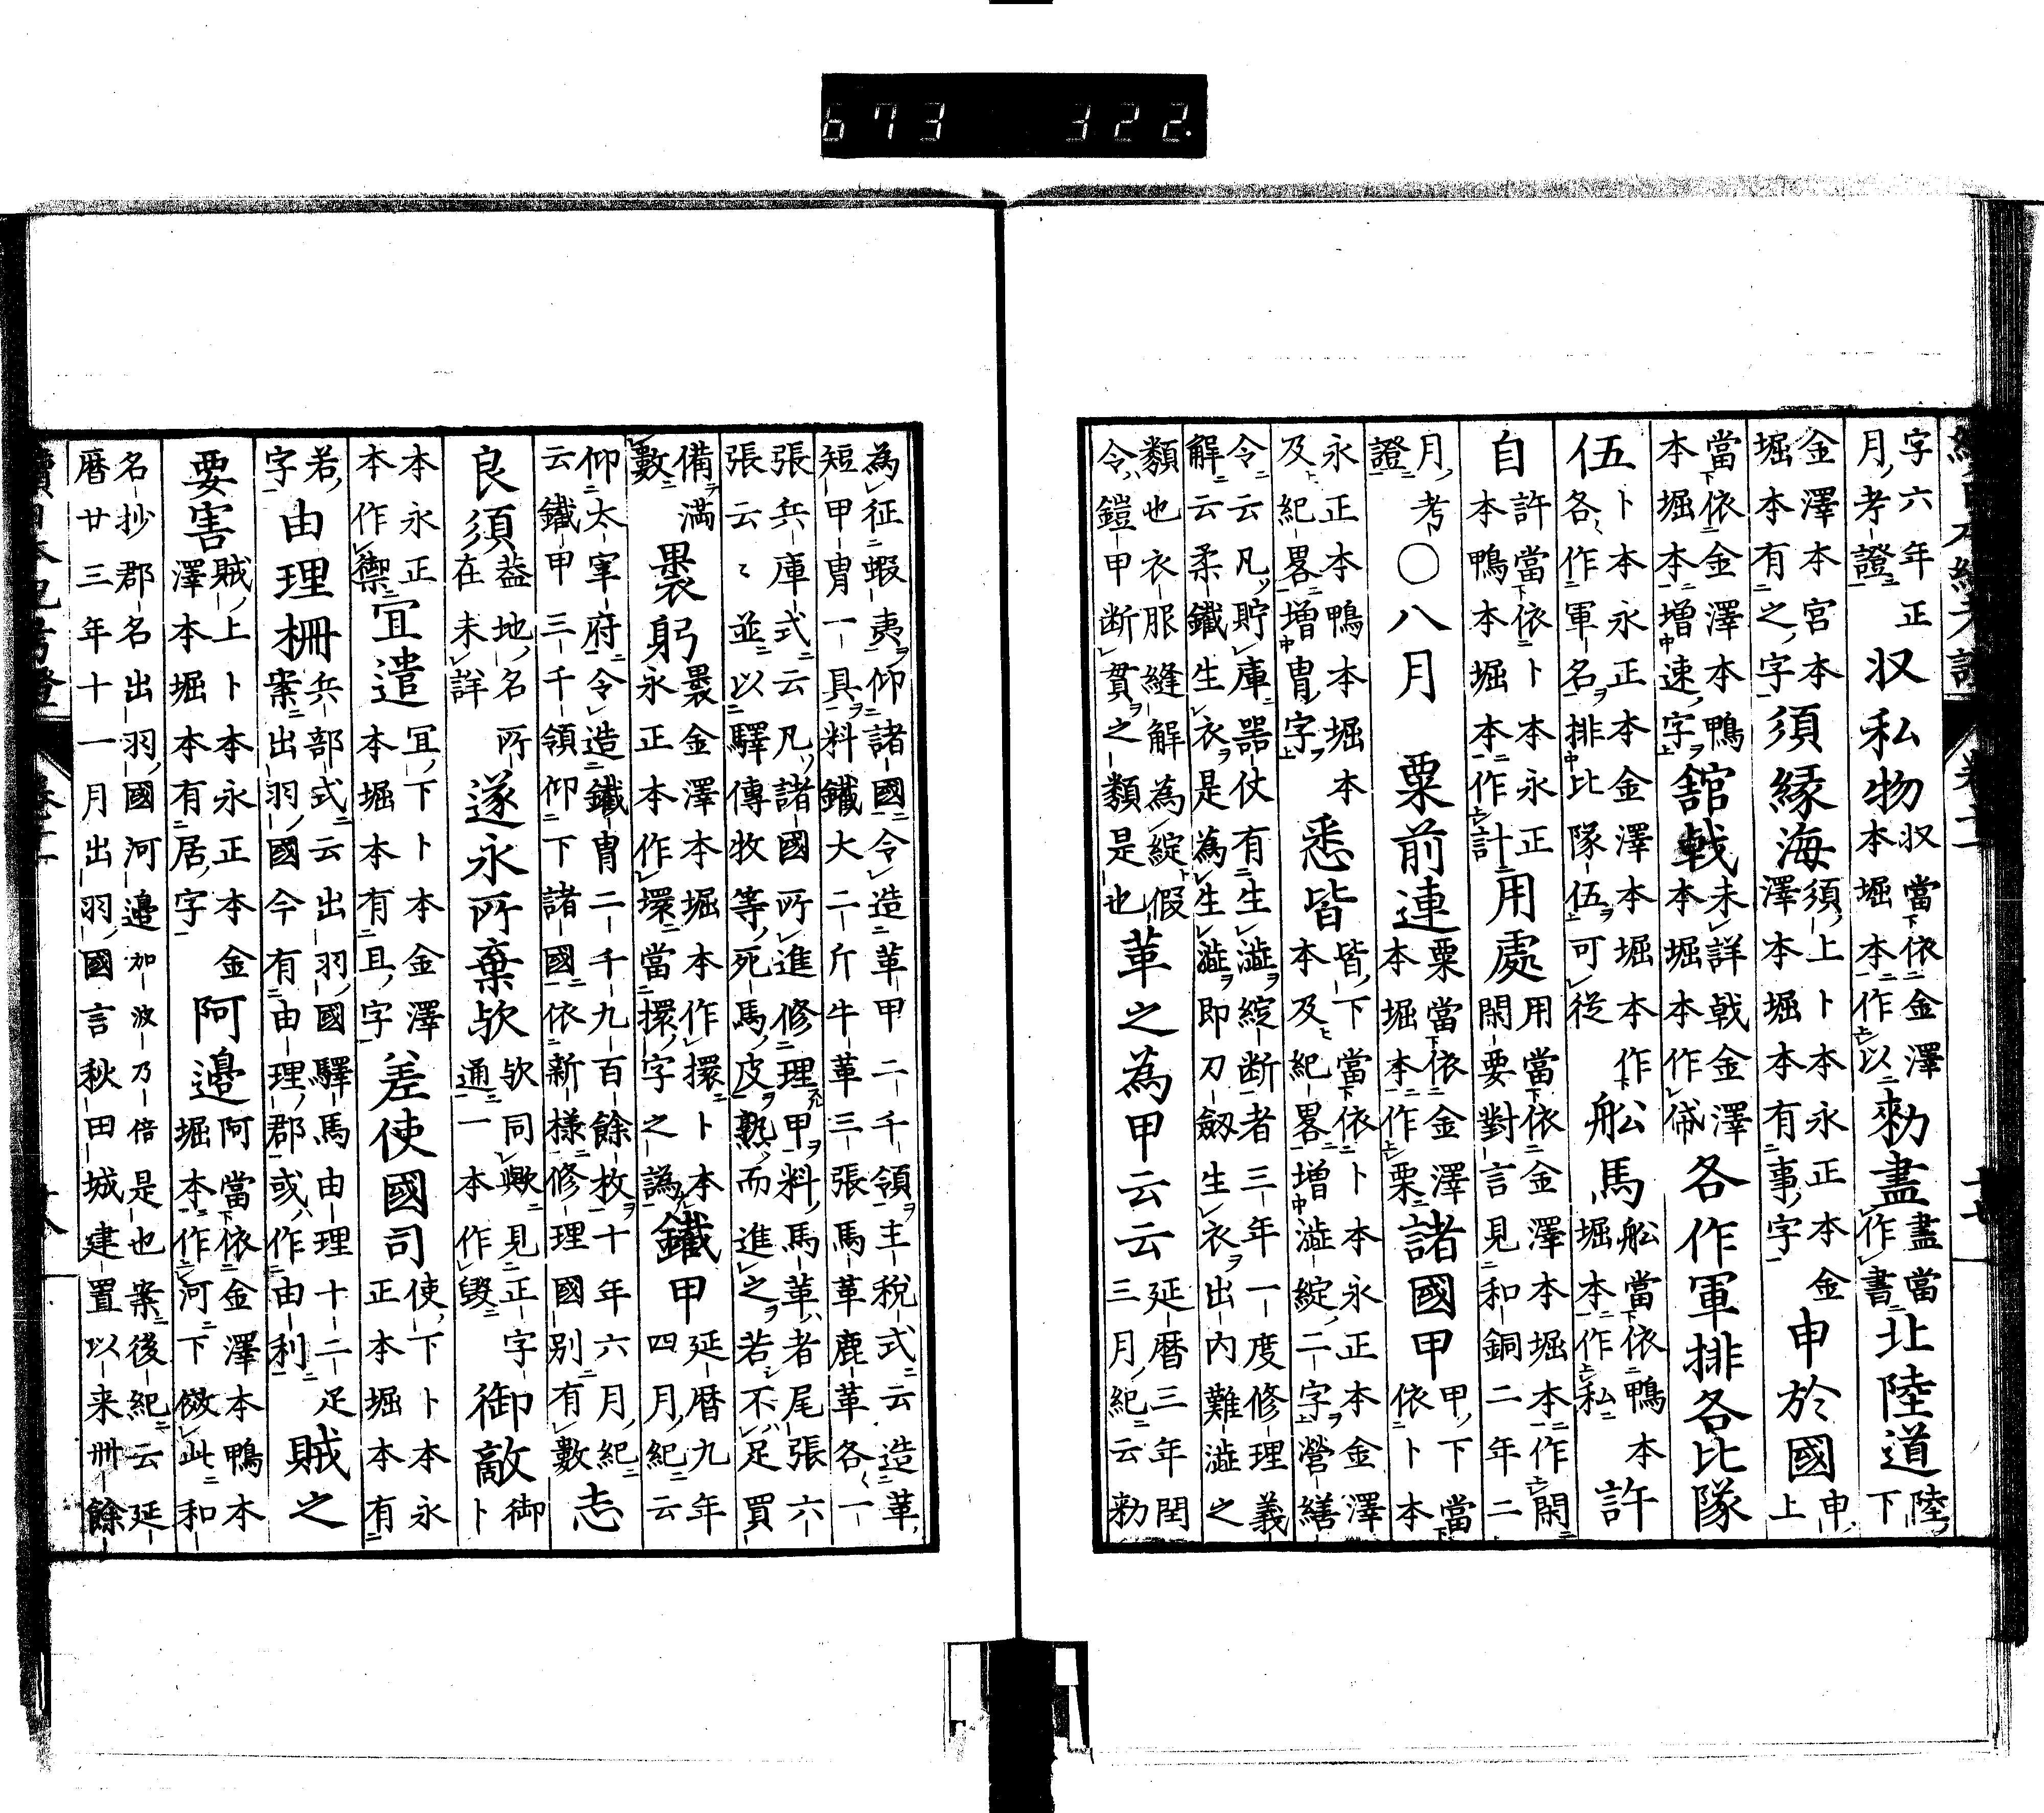 字六年正月考證收私物收當依金澤本堀本作以勅盡盡當作書北陸道陸下
金澤本宮本堀本有之字須縁海須上卜本永正本金澤本堀本有事字申於國申上
當依金澤本鴨本堀本增速字舘戟未詳戟金澤本堀本作各作軍排各比隊
伍卜本永正本金澤本堀本作各作軍名排比隊伍可從船馬船當依鴨本堀本作私許
自許當依卜本永正本鴨本堀本作計用處用當依金澤本堀本作閑閑要對言見和銅二年二
月考證○八月 粟前連粟當依金澤本堀本作栗諸國甲甲下當依卜本
永正本鴨本堀本及紀畧增冑字悉皆皆下當依卜本永正本金澤本及紀畧增澁綻二字營繕
令云凡貯庫器仗有生澁綻断者三年一度修理義解云柔鐵生衣是為生澁即刀劔生衣出内難澁之
類也衣服縫解為綻假令鎧甲断貫之類是也革之為甲云云延暦三年閏三月紀云勅
為征蝦夷仰諸國令造革甲二千領主税式云造革短甲冑一具料鐵大二斤牛革三張馬革鹿革各一
張兵庫式云凡諸國所進修理甲料馬革者尾張六張云〻並以驛傳牧等死馬皮熟而進之若不足買
備滿數褁躬褁金澤本堀本作擐卜本永正本作環當擐字之譌鐵甲延暦九年四月紀云
仰太宰府令造鐵冑二千九百餘枚十年六月紀云鐵甲三千領仰下諸國依新樣修理國別有數志
良須蓋地名所在未詳遂永所棄欤欤同歟見正字通一本作毀御敵御卜
本永正本作禦宜遣宜下卜本金澤本堀本有且字差使國司使下卜本永正本堀本有
若字由理柵兵部式云出羽國驛馬由理十二疋案出羽國今有由理郡或作由利賊之
要害賊上卜本永正本金澤本堀本有居字阿邊阿當依金澤本鴨本堀本作河下傚此和
名抄郡名出羽國河邊加波乃倍是也案後紀云延暦廿三年十一月出羽國言秋田城建置以来卌餘